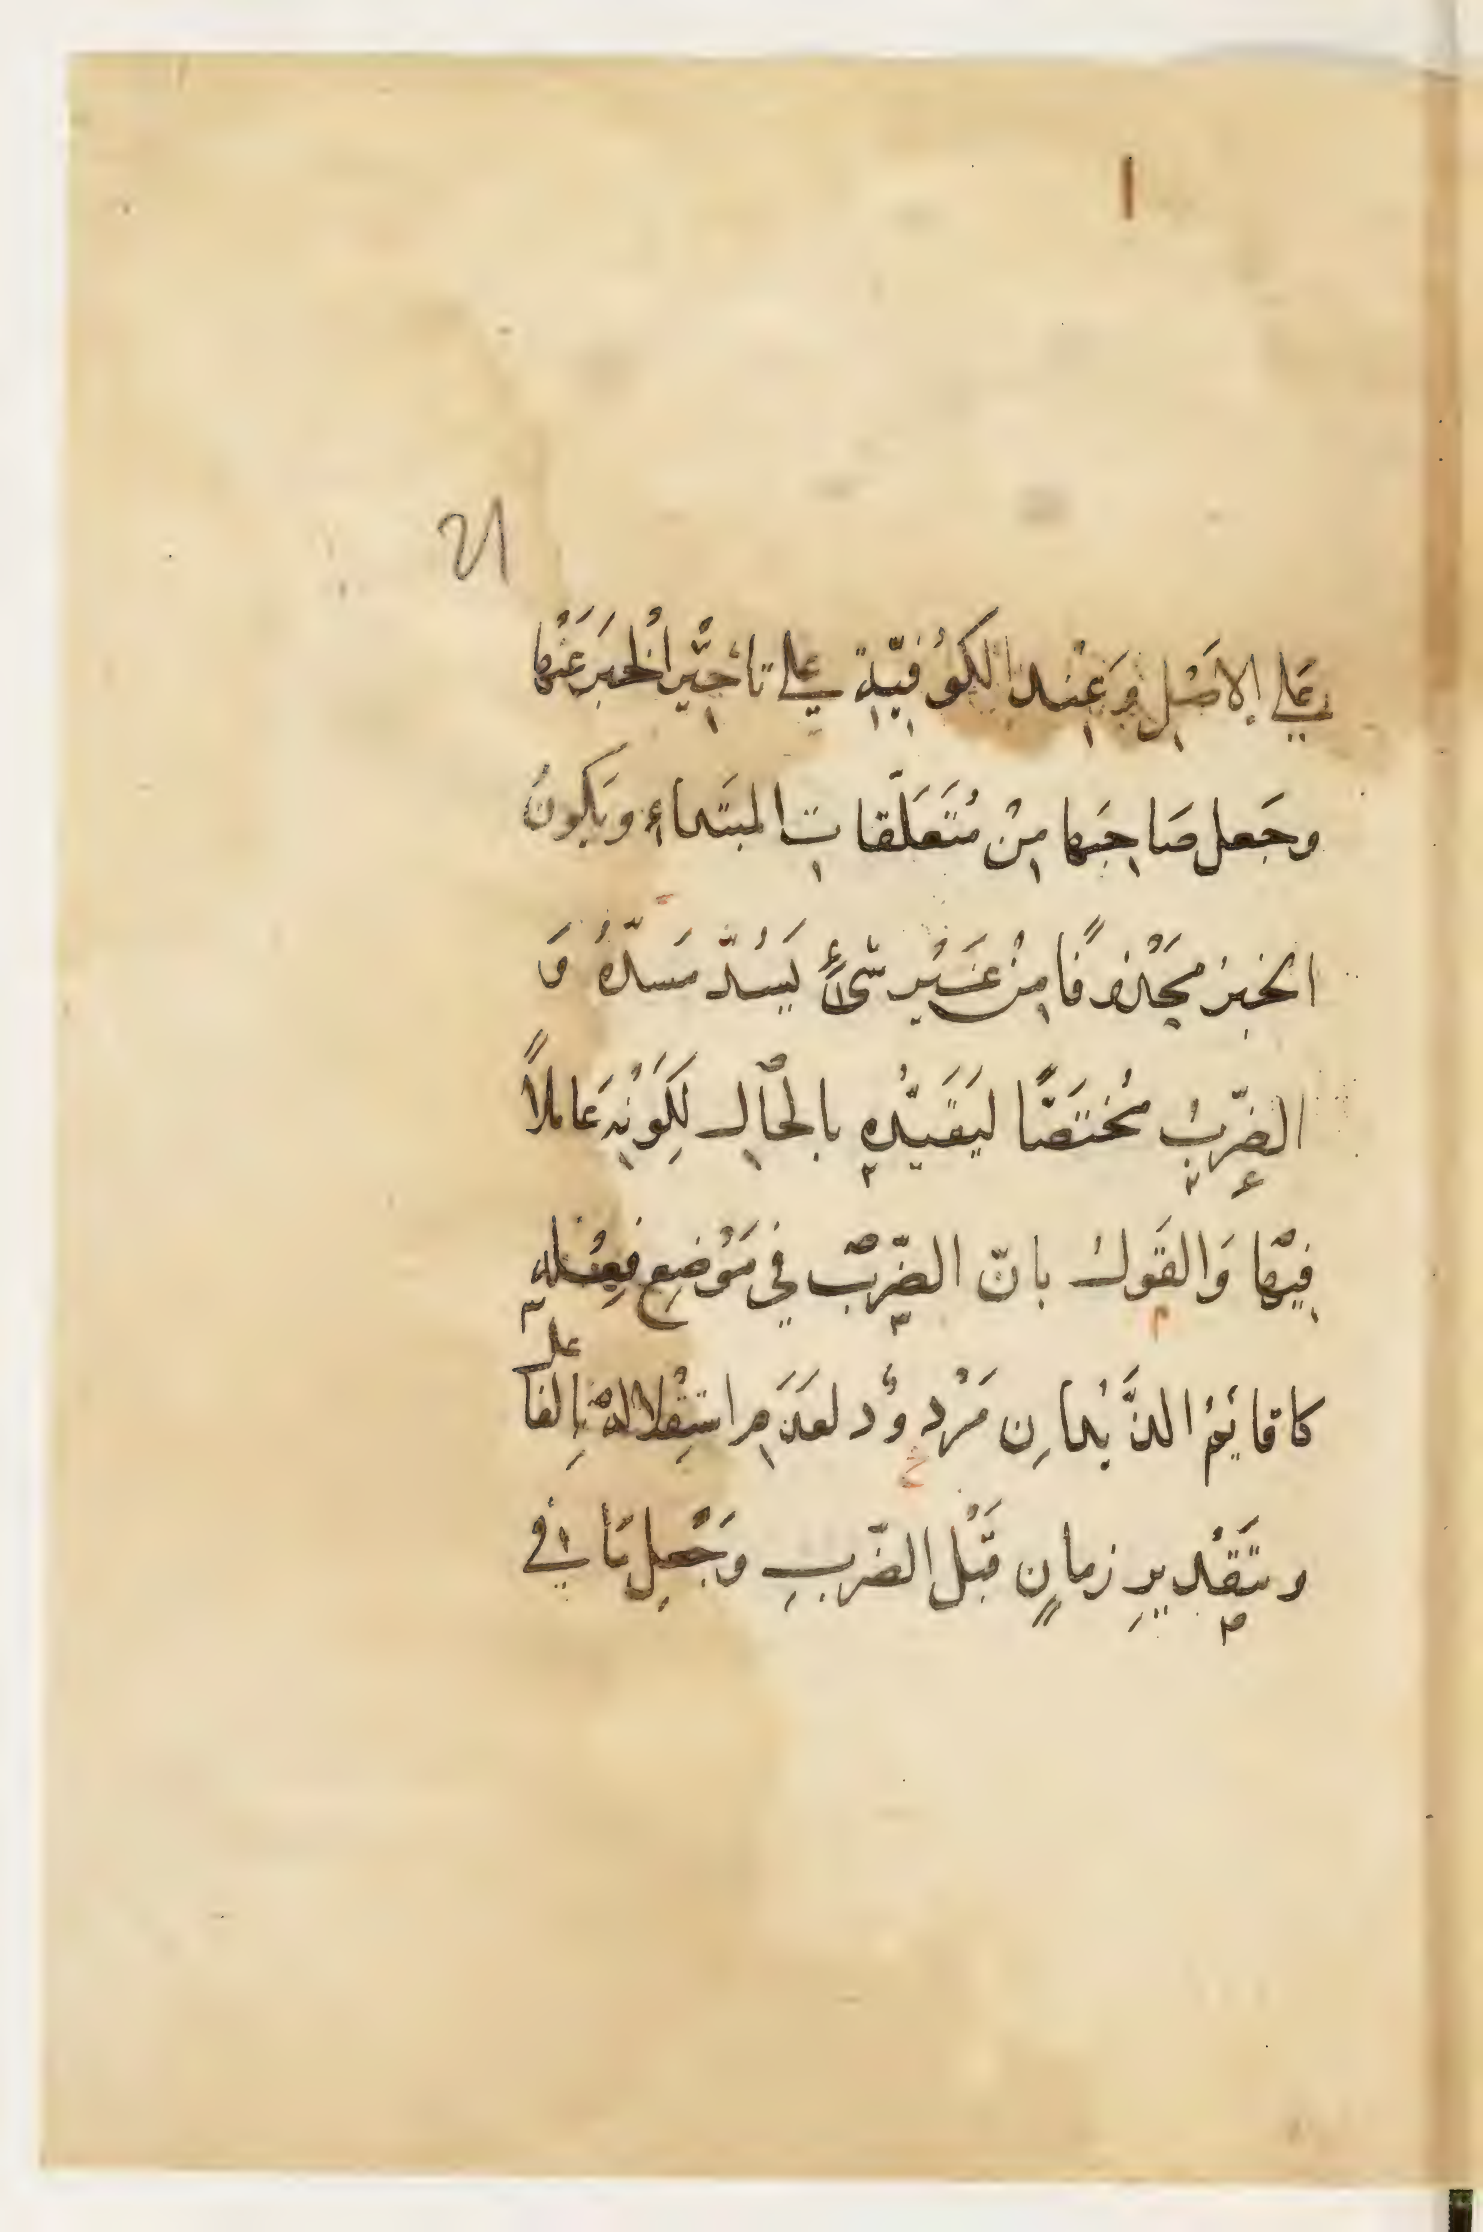 على الاَصْلِ وَعِنْد الكوُفِيّةِ على تاخِيْرِ اْلخبَرِ عَنْها
وجَعل صَاحِبَها مِنْ مُتَعَلّقاتِ المبتَداءِ ويَكونُ
الخبر مَحْذوفًا مِنْ غَيْرِ شَىْءٍ يَسُدّ مَسَدّهُ وَ
الضّربُ مُختَصًّا ليَقَيّدهِ بالحْالِ لِكَوْنِهِ عَاملاً
فِيْها وَالقَولُ بانّ الضّربْ في مَوْضِعِ فِعْلهِ
كاقايَمُ الذَّيْدانِ مَرْدوُد لعَدَمِ اسْتِقْلالهْ بِالفا على
وبتَقْديرِ زمانٍ قَبْل الضّربِ وجَعْلِ مَا في